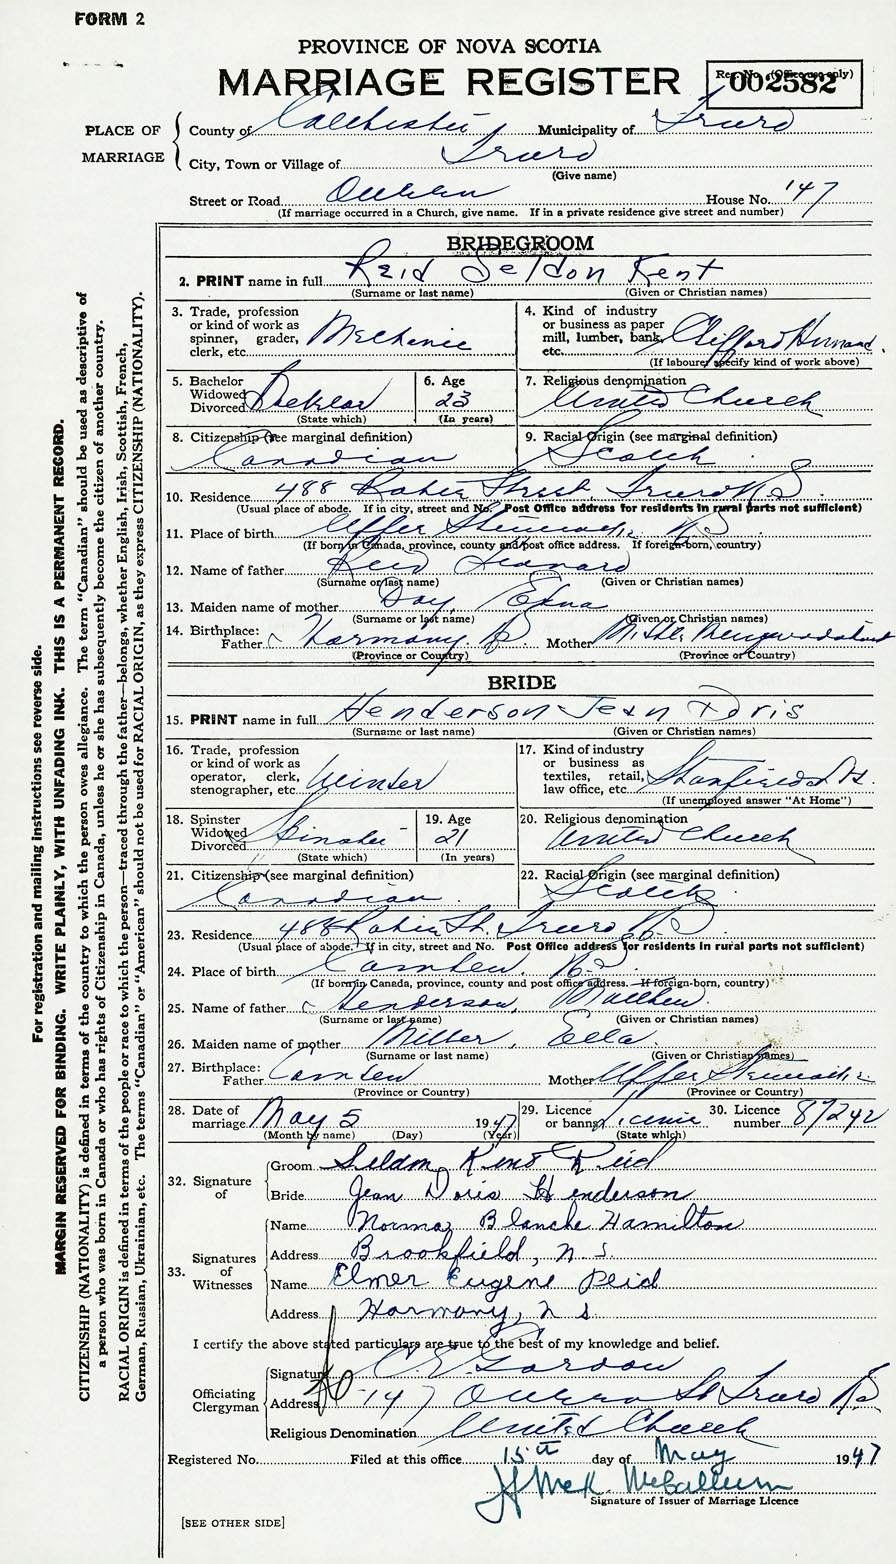 FORM 2
PROVINCE OF NOVA SCOTIA
MARRIAGE REGISTER
Reg. No. (Office use only)
002582
PLACE OF MARRIAGE
County of Colchester Municipality of Truro
City, Town or Village of Truro
(Give name)
Street or Road Queen House No. 147
(If marriage occurred in a Church, give name. If in a private residence give street and number)
BRIDEGROOM
2. PRINT name in full Reid Seldon Kent
(Surname or last name) (Given or Christian names)
3. Trade, profession or kind of work as spinner, grader, clerk, etc. Mechanic
4. Kind of industry or business as paper mill, lumber, bank, etc. Clifford
(If labourer specify kind of work above)
5. Bachelor Widowed Divorced Bachelor
(State which)
6. Age 23
(In years)
7. Religious denomination United Church
8. Citizenship (see marginal definition) Canadian
9. Racial Origin (see marginal definition) Scotch
10. Residence 488 Robie Street, Truro NS
(Usual place of abode. If in city, street and No. Post Office address for residents in rural parts not sufficient)
11. Place of birth Upper Stewiacke NS
(If born in Canada, province, county and post office address. If foreign-born, country)
12. Name of father Reid Leonard
(Surname or last name) (Given or Christian names)
13. Maiden name of mother Day, Edna
(Surname or last name) (Given or Christian names)
14. Birthplace: Father Harmony, NS Mother
(Province or Country) (Province or Country)
BRIDE
15. PRINT name in full Henderson - Jean Doris
(Surname or last name) (Given or Christian names)
16. Trade, profession or kind of work as operator, clerk, stenographer, etc. Winder
17. Kind of industry or business as textiles, retail, law office, etc. Stanfields
(If unemployed answer "At Home")
18. Spinster Widowed Divorced Spinster
(State which)
19. Age 21
(In years)
20. Religious denomination United Church
21. Citizenship (see marginal definition) Canadian
22. Racial Origin (see marginal definition) Scotch
23. Residence 488 Robie St. Truro NS
(Usual place of abode. If in city, street and No. Post Office address for residents in rural parts not sufficient)
24. Place of birth Camden, NS
(If born in Canada, province, county and post office address. If foreign-born, country)
25. Name of father Henderson, Matthew
(Surname or last name) (Given or Christian names)
26. Maiden name of mother Miller, Eella
(Surname or last name) (Given or Christian names)
27. Birthplace: Father Camden Mother Upper Stewiacke
(Province or Country) (Province or Country)
28. Date of marriage May 5 1947
(Month by name) (Day) (Year)
29. Licence or banns Licence
(State which)
30. Licence number 87242
32. Signature of
Groom Seldon Kent Reid
Bride Jean Doris Henderson
33. Signatures of Witnesses
Name Norma Blanche Hamilton
Address Brookfield, N S.
Name Elmer Eugene Reid
Address Harmony, N S.
I certify the above stated particulars are true to the best of my knowledge and belief.
Officiating Clergyman
Signature C. E. Gordon
Address 147 Queen St Truro NS
Religious Denomination United Church
Registered No. Filed at this office 15th day of May 1947
J H McK. McCallum
Signature of Issuer of Marriage Licence
[SEE OTHER SIDE]
For registration and mailing instructions see reverse side.
MARGIN RESERVED FOR BINDING. WRITE PLAINLY, WITH UNFADING INK. THIS IS A PERMANENT RECORD.
CITIZENSHIP (NATIONALITY) is defined in terms of the country to which the person owes allegiance. The term "Canadian" should be used as descriptive of
a person who was born in Canada or who has rights of Citizenship in Canada, unless he or she has subsequently become the citizen of another country.
RACIAL ORIGIN is defined in terms of the people or race to which the person—traced through the father—belongs, whether English, Irish, Scottish, French,
German, Russian, Ukrainian, etc. The terms "Canadian" or "American" should not be used for RACIAL ORIGIN, as they express CITIZENSHIP (NATIONALITY).